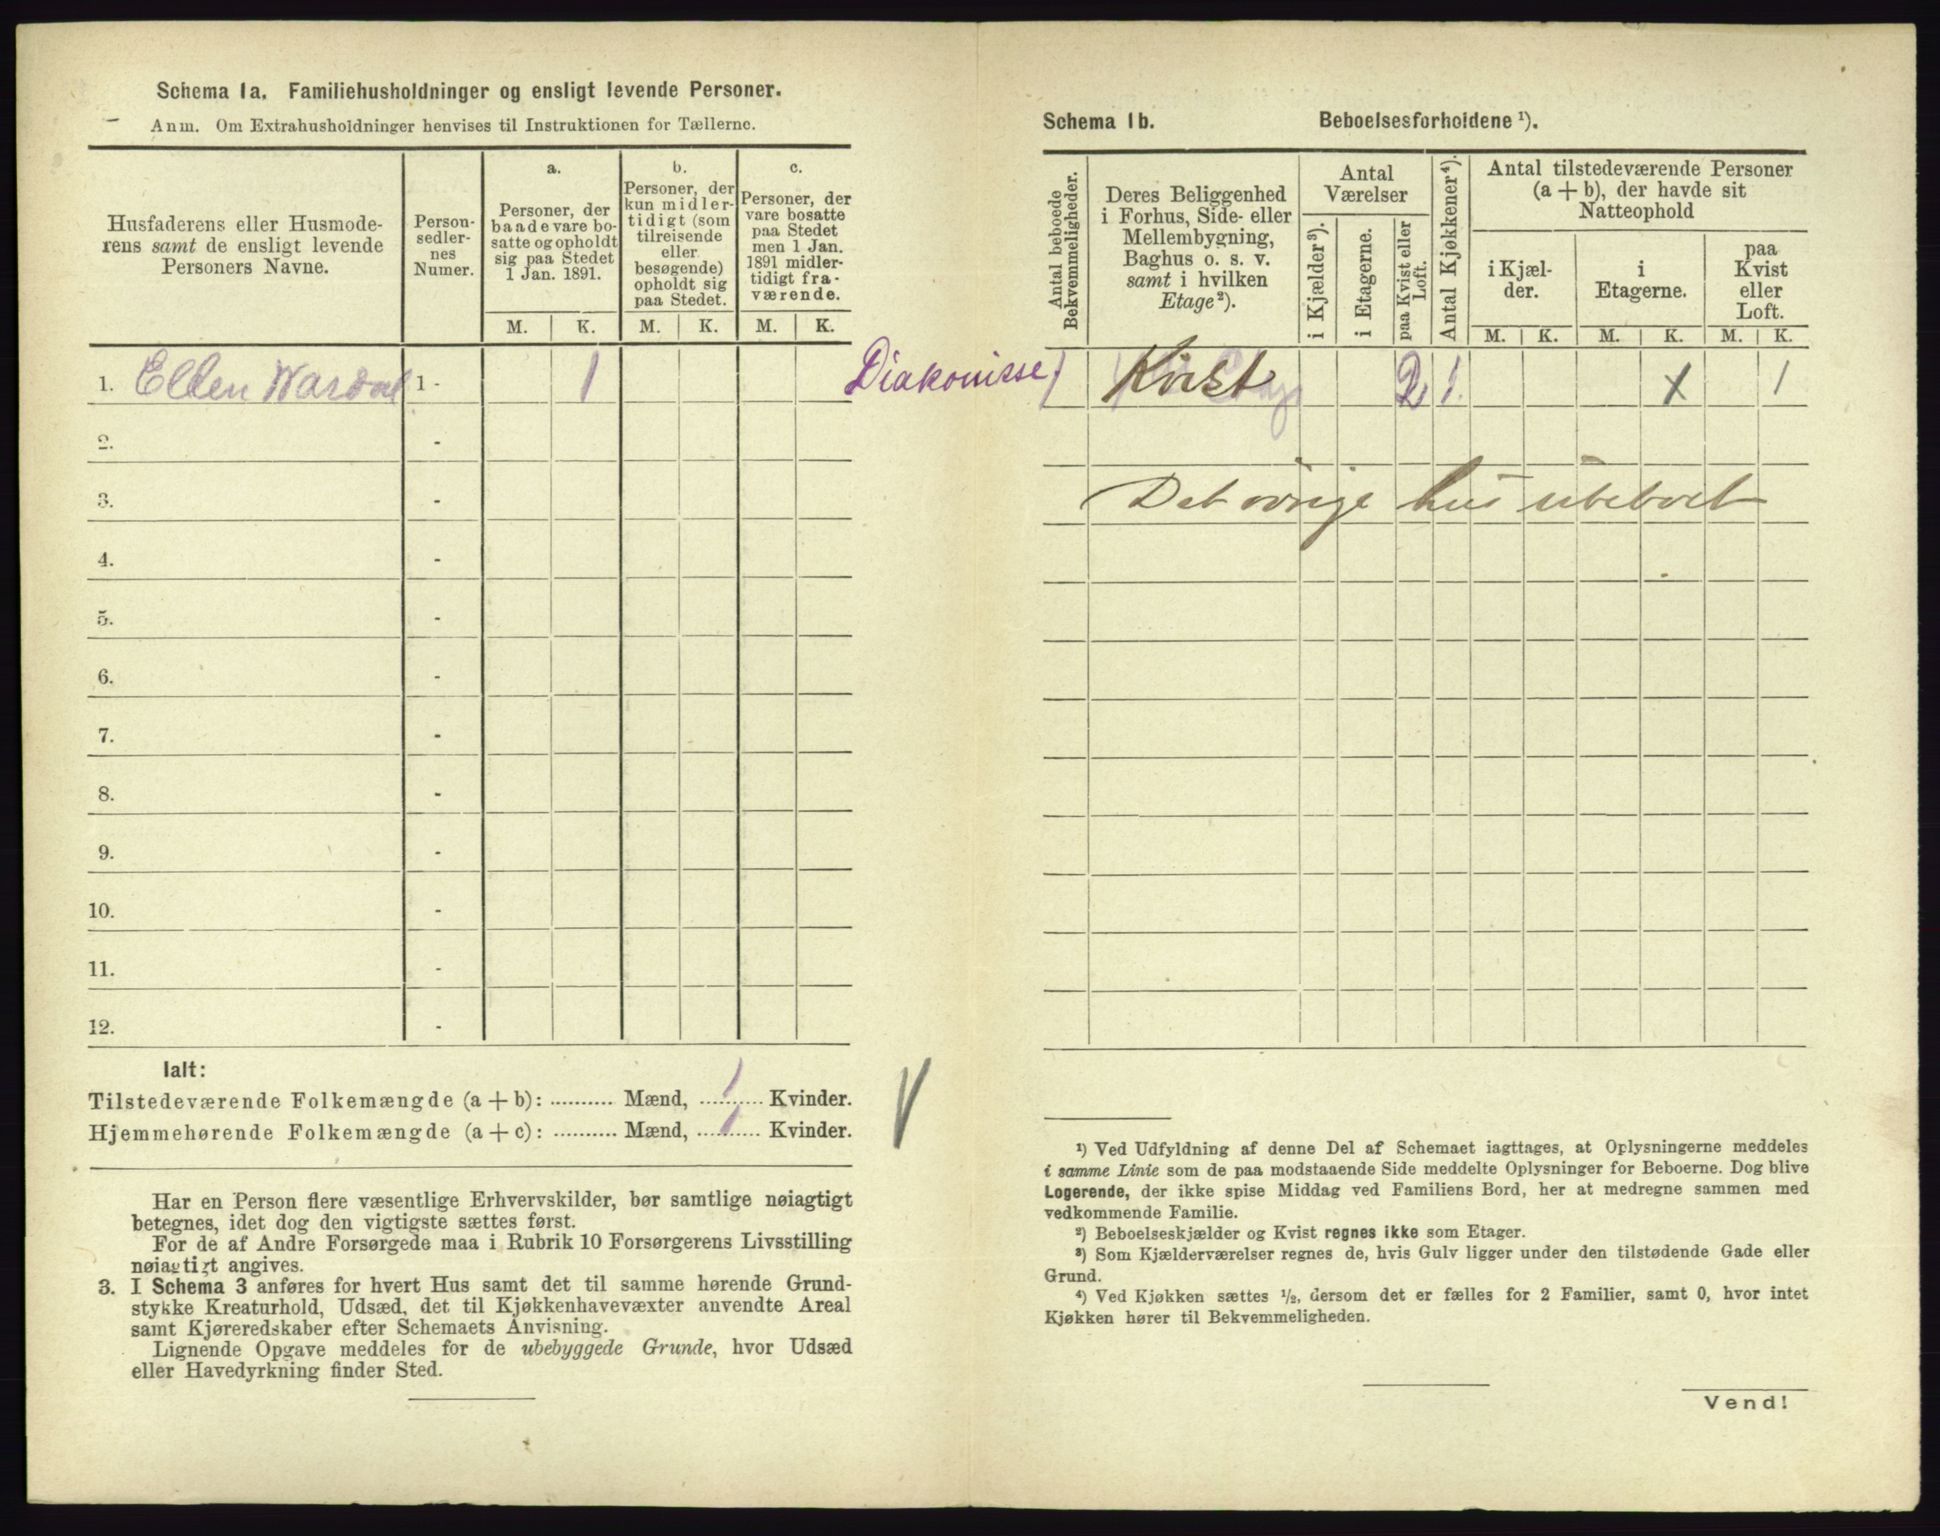 Schema 1a. Familiehusholdninger og ensligt levende Personer.
Anm. Om Extrahusholdninger henvises til Instruktionen for Tællerne.
Husfaderens eller Husmode-
rens samt de ensligt levende
Personers Navne.
Person-
sedler-
nes
Numer.
a.
Personer, der
baade vare bo-
satte og opholdt
sig paa Stedet
1 Jan. 1891.
b.
Personer, der
kun midler-
tidigt (som
tilreisende
eller
besøgende)
opholdt sig
paa Stedet.
c.
Personer, der
vare bosatte
paa Stedet
men 1 Jan.
1891 midler-
tidigt fra-
værende.
M. K. M. K. M. K.
1. Ellen Wardal 1 - 1 Diakonisse
2. -
3. -
4. -
5. -
6. -
7. -
8. -
9. -
10. -
11. -
12. -
Ialt:
Tilstedeværende Folkemængde (a + b): .......... Mænd, 1 Kvinder.
Hjemmehørende Folkemængde (a + c): .......... Mænd, 1 Kvinder.
Har en Person flere væsentlige Erhvervskilder, bør samtlige nøiagtigt
betegnes, idet dog den vigtigste sættes først.
For de af Andre Forsørgede maa i Rubrik 10 Forsørgerens Livsstilling
nøiagtigt angives.
3. I Schema 3 anføres for hvert Hus samt det til samme hørende Grund-
stykke Kreaturhold, Udsæd, det til Kjøkkenhavevæxter anvendte Areal
samt Kjøreredskaber efter Schemaets Anvisning.
Lignende Opgave meddeles for de ubebyggede Grunde, hvor Udsæd
eller Havedyrkning finder Sted.
Schema 1b. Beboelsesforholdene ¹).
Antal beboede
Bekvemmeligheder.
Deres Beliggenhed
i Forhus, Side- eller
Mellembygning,
Baghus o. s. v.
samt i hvilken
Etage²).
Antal
Værelser
i Kjælder³).
i Etagerne.
paa Kvist eller
Loft.
Antal Kjøkkener⁴).
Antal tilstedeværende Personer
(a + b), der havde sit
Natteophold
i Kjæl-
der.
i
Etagerne.
paa
Kvist
eller
Loft.
M. K. M. K. M. K.
1 Kvist 2 1. x 1
Det øvrige hus ubeboet
¹) Ved Udfyldning af denne Del af Schemaet iagttages, at Oplysningerne meddeles
i samme Linie som de paa modstaaende Side meddelte Oplysninger for Beboerne. Dog blive
Logerende, der ikke spise Middag ved Familiens Bord, her at medregne sammen med
vedkommende Familie.
²) Beboelseskjælder og Kvist regnes ikke som Etager.
³) Som Kjælderværelser regnes de, hvis Gulv ligger under den tilstødende Gade eller
Grund.
⁴) Ved Kjøkken sættes ½, dersom det er fælles for 2 Familier, samt 0, hvor intet
Kjøkken hører til Bekvemmeligheden.
Vend!